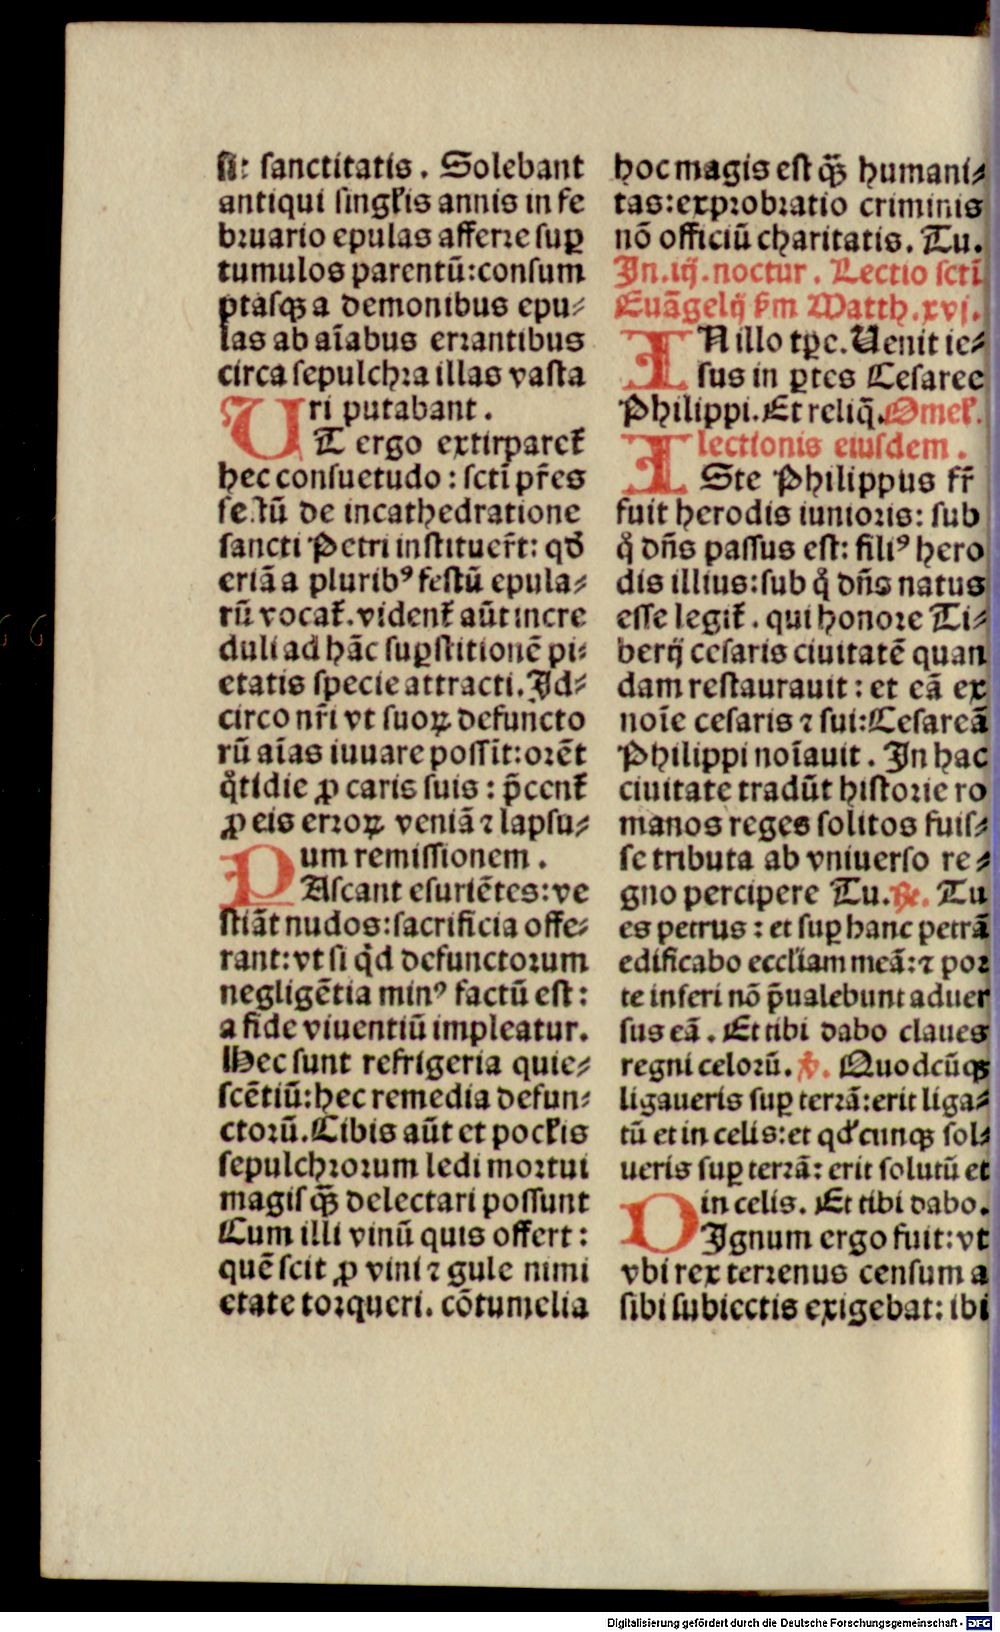 si: sanctitatis. Solebant
antiqui singl'is annis in fe
bruario epulas afferre suꝑ
tumulos parentū: consum
ptasqꝫ a demonibus epu⸗
las ab aĩabus errantibus
circa sepulchra illas vasta
ri putabant.
UT ergo extirparet᷑
hec consuetudo: scti p̃es
festū de incathedratione
sancti Petri instituer̃t: qđ
eriã a pluribꝰ festū epula⸗
rū vocat᷑. vident᷑ aūt incre
duli ad hāc suꝑstitionē pi⸗
etatis specie attracti. Id⸗
circo nr̃i vt suoꝝ defuncto
rū aĩas iuuare possīt: orēt
q̊tidie ꝓ caris suis: p̄cent᷑
ꝓ eis erroꝝ veniā ⁊ lapsu⸗
um remissionem.
PAscant esuriētes: ve
stiāt nudos: sacrificia offe⸗
rant: vt si qͥd defunctorum
negligētia minꝰ factū est:
a fide viuentiū impleatur.
Hec sunt refrigeria quie⸗
scētiū: hec remedia defun⸗
ctorū. Cibis aūt et pocl'is
sepulchrorum ledi mortui
magis qꝫ̄ delectari possunt
Cum illi vinū quis offert:
quē scit ꝓ vini ⁊ gule nimi
etate torqueri. cōtumelia
hoc magis est qꝫ̄ humani⸗
tas: exprobratio criminis
nō officiū charitatis. Tu.
In .iij. noctur. Lectio scti
Euāgelij ẜm Matth. xvj.
IN illo tꝑe. Uenit ie⸗
sus in ꝑtes Cesaree
Philippi. Et reliq̄. Omel'.
lectionis eiusdem.
ISte Philippus fr̃
fuit herodis iunioris: sub
qͦ dn̄s passus est: filiꝰ hero
dis illius: sub qͦ dn̄s natus
esse legit᷑. qui honore Ti⸗
berij cesaris ciuitatē quan
dam restaurauit: et eā ex
noĩe cesaris ⁊ sui: Cesareā
Philippi noĩauit. In hac
ciuitate tradūt historie ro
manos reges solitos fuis⸗
se tributa ab vniuerso re⸗
gno percipere Tu. ℟. Tu
es petrus: et suꝑ hanc petrā
edificabo eccl'iam meā: ⁊ por
te inferi nō p̄ualebunt aduer
sus eā. Et tibi dabo claues
regni celorū. ℣. Quodcūqꝫ
ligaueris suꝑ terrā: erit liga⸗
tū et in celis: et qđcunqꝫ sol⸗
ueris suꝑ terrā: erit solutū et
in celis. Et tibi dabo.
DIgnum ergo fuit: vt
vbi rex terrenus censum a
sibi subiectis exigebat: ibi
Digitalisierung gefördert durch die Deutsche Forschungsgemeinschaft - DFG